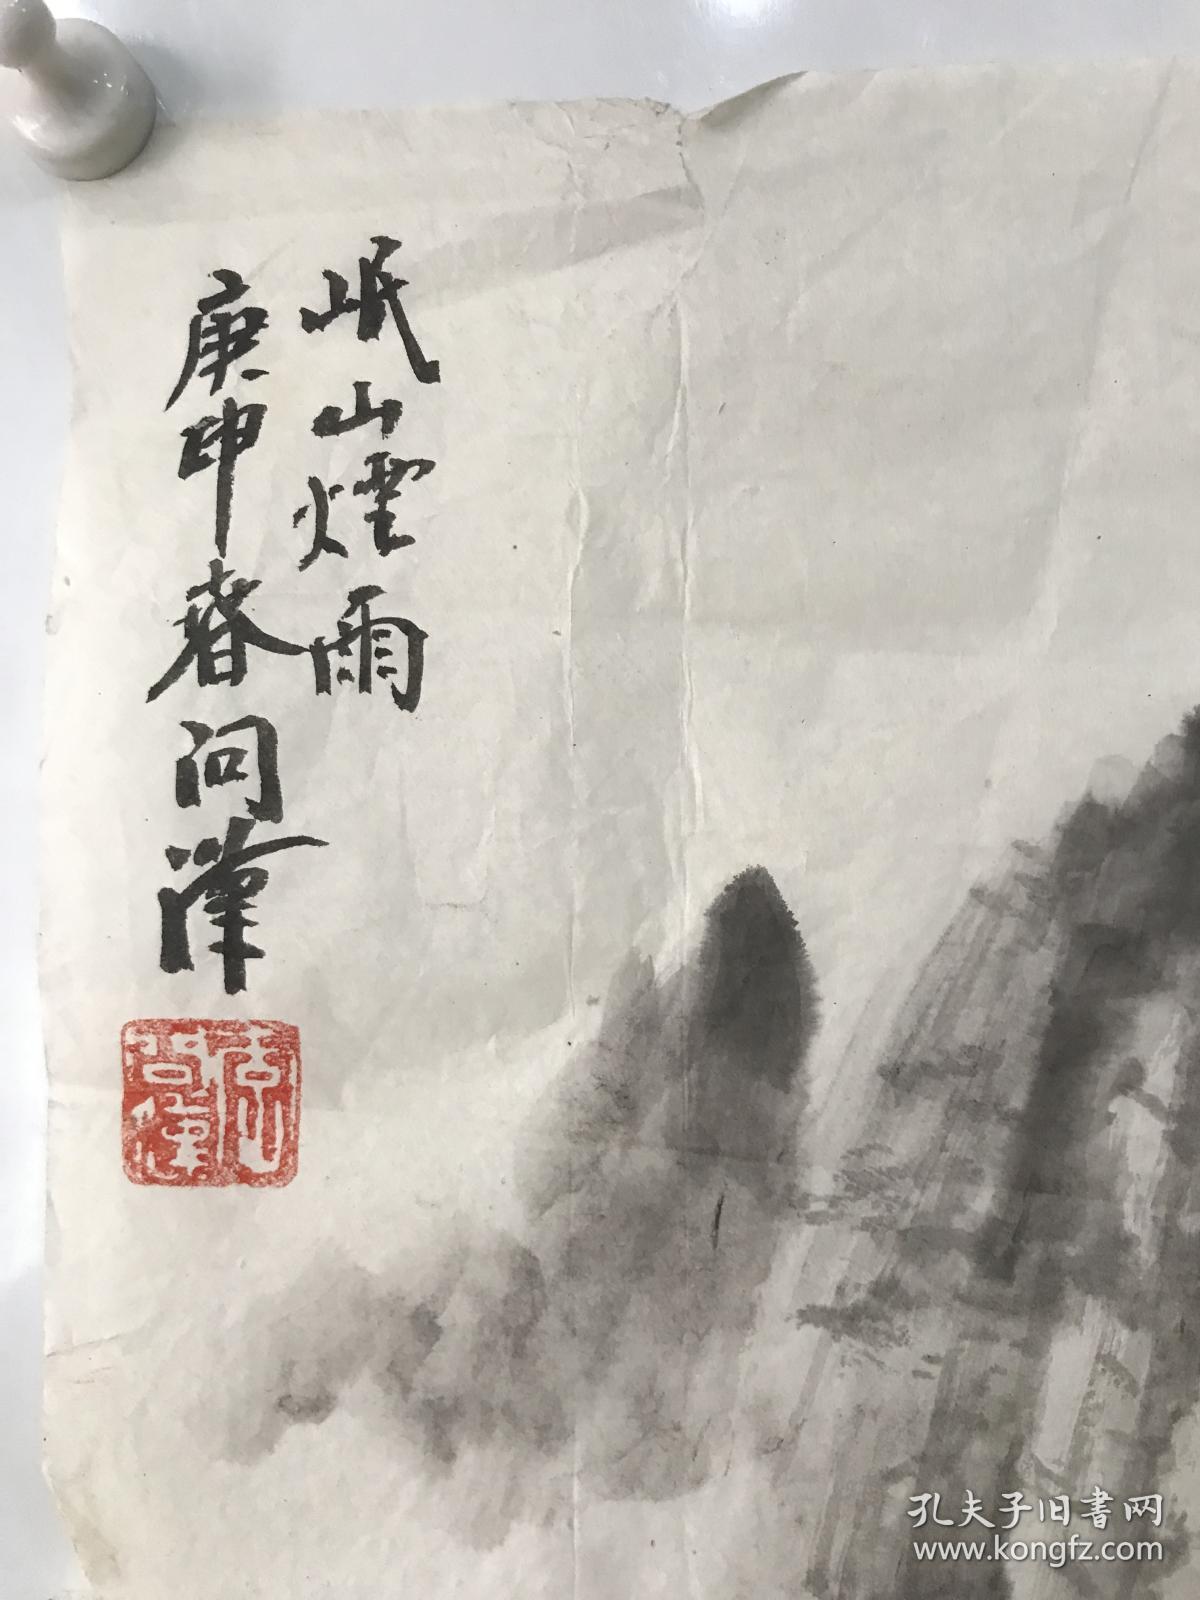 岷山煙雨
庚申春问漢
孔夫子旧書网
www.kongfz.com